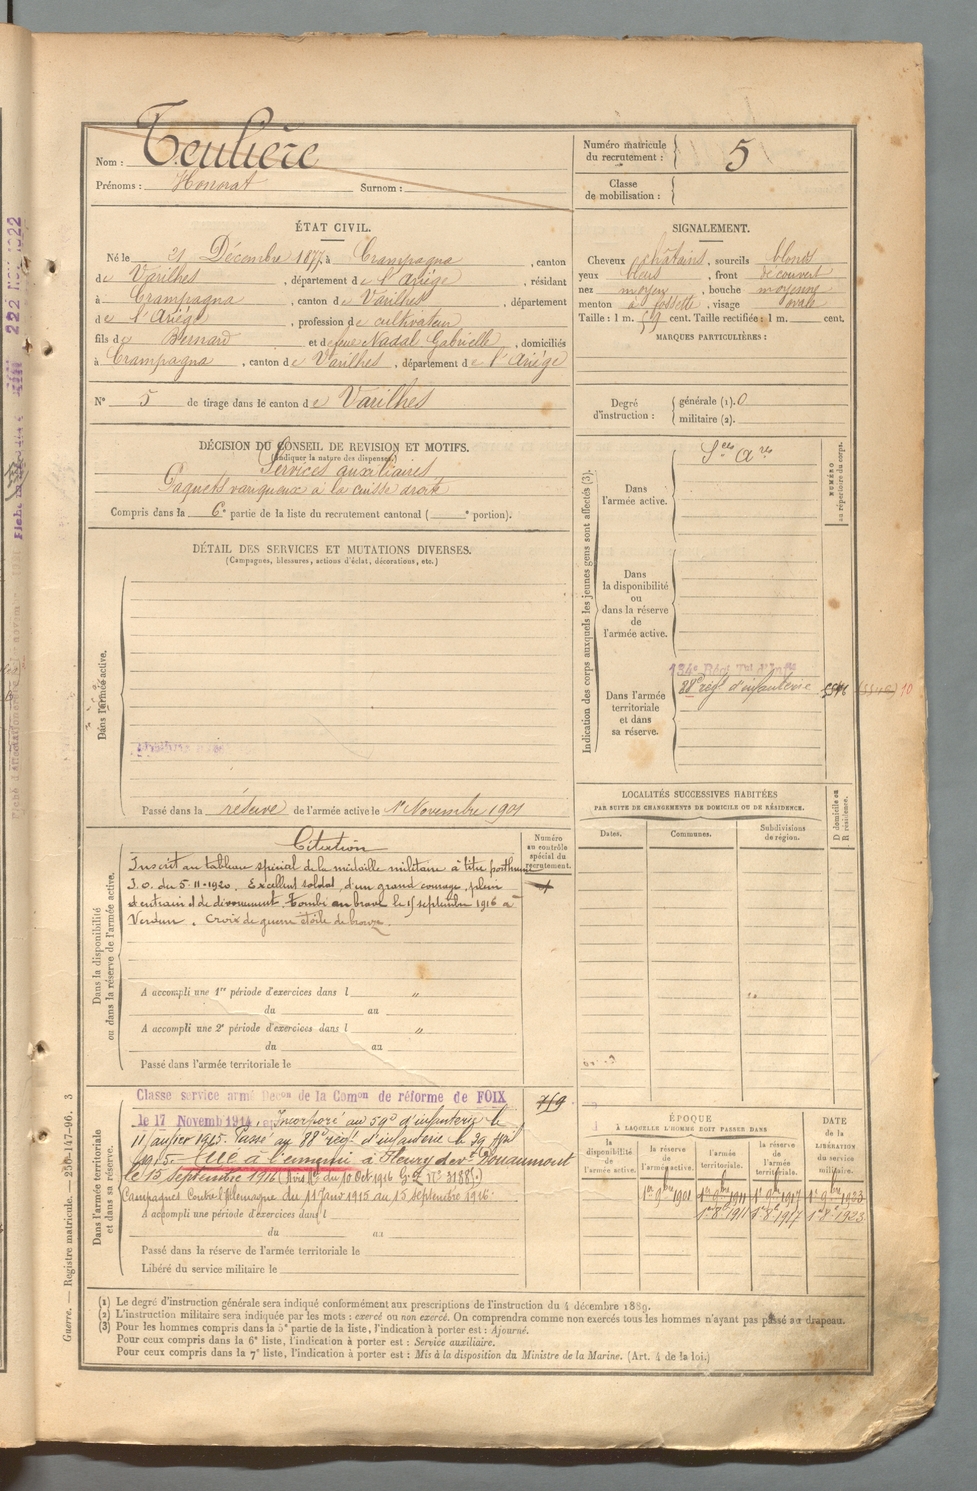 Nom : Teulière
Prénoms : Honorat Surnom :
Numéro matricule du recrutement : 5
Classe de mobilisation :
ÉTAT CIVIL.
Né le 21 Décembre 1877, à Crampagna, canton
de Varilhes, département de l'Ariège, résidant
à Crampagna, canton de Varilhes, département
de l'Ariège, profession de cultivateur
fils de Bernard et de feue Nadal Gabrielle, domiciliés
à Crampagna, canton de Varilhes, département de l'Ariège
N° 5 de tirage dans le canton de Varilhes
SIGNALEMENT.
Cheveux châtains, sourcils blonds
yeux bleus, front découvert
nez moyen, bouche moyenne
menton à fossette, visage ovale
Taille : 1 m. 59 cent. Taille rectifiée : 1 m. cent.
MARQUES PARTICULIÈRES :
Degré d'instruction : générale (1). 0
militaire (2).
DÉCISION DU CONSEIL DE REVISION ET MOTIFS.
(Indiquer la nature des dispenses.)
Services auxiliaires
Paquets variqueux à la cuisse droite
Compris dans la 6e partie de la liste du recrutement cantonal ( e portion).
DÉTAIL DES SERVICES ET MUTATIONS DIVERSES.
(Campagnes, blessures, actions d'éclat, décorations, etc.)
Dans l'armée active.
Passé dans la réserve de l'armée active le 1er Novembre 1901
Indication des corps auxquels les jeunes gens sont affectés (3).
NUMÉRO au répertoire du corps.
Dans l'armée active.
Sces Ares
Dans la disponibilité ou dans la réserve de l'armée active.
Dans l'armée territoriale et dans sa réserve.
134e Régt Tal d'Infie
88e régt d'infanterie
10
LOCALITÉS SUCCESSIVES HABITÉES
PAR SUITE DE CHANGEMENTS DE DOMICILE OU DE RÉSIDENCE.
D domicile ou R résidence.
Dates. Communes. Subdivisions de région.
Dans la disponibilité ou dans la réserve de l'armée active.
Numéro au contrôle spécial du recrutement.
Citation
Inscrit au tableau spécial de la médaille militaire à titre posthume
J.O. du 5-11-1920. Excellent soldat, d'un grand courage, plein
d'entrain et de dévouement. Tombé en brave le 15 septembre 1916 à
Verdun. Croix de guerre étoile de bronze.
A accompli une 1re période d'exercices dans l "
du au
A accompli une 2e période d'exercices dans l "
du au
Passé dans l'armée territoriale le
Dans l'armée territoriale et dans sa réserve.
Classe service armé Décon de la Comon de réforme de FOIX
le 17 Novemb 1914. Incorporé au 59e d'infanterie le
11 janvier 1915. Passé au 88e régt d'infanterie le 29
1915. Tué à l'ennemi à Fleury devt Douaumont
le 15 septembre 1916 (Avis Mel du 10 Oct 1916
Campagnes Contre l'Allemagne du 11 Janv 1915 au 15 septembre 1916.
A accompli une période d'exercices dans l
du au
Passé dans la réserve de l'armée territoriale le
Libéré du service militaire le
719
ÉPOQUE
À LAQUELLE L'HOMME DOIT PASSER DANS
DATE de la LIBÉRATION du service militaire.
la disponibilité de l'armée active. la réserve de l'armée active. l'armée territoriale. la réserve de l'armée territoriale.
1er 9bre 1901 1er 9bre 1911 1er 9bre 1917 1er 9bre 1923
1er 8e 1911 1er 8e 1917 1er 8e 1923
(1) Le degré d'instruction générale sera indiqué conformément aux prescriptions de l'instruction du 4 décembre 1889.
(2) L'instruction militaire sera indiquée par les mots : exercé ou non exercé. On comprendra comme non exercés tous les hommes n'ayant pas passé au drapeau.
(3) Pour les hommes compris dans la 5e partie de la liste, l'indication à porter est : Ajourné.
Pour ceux compris dans la 6e liste, l'indication à porter est : Service auxiliaire.
Pour ceux compris dans la 7e liste, l'indication à porter est : Mis à la disposition du Ministre de la Marine. (Art. 4 de la loi.)
Guerre. — Registre matricule. — 250-147-96. 3